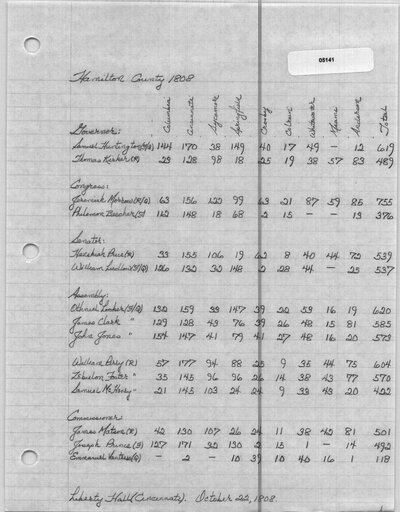 05141
Hamilton County 1808
Columbia Cincinnati Sycamore Springfield Crosby Colerain Whitewater Miami Anderson Total
Governor:
Samuel Huntington 144 170 38 149 40 17 49 — 12 619
Thomas Kirker (R) 29 128 98 18 25 19 38 57 83 489
Congress:
Jeremiah Morrow (R/Q) 63 156 122 99 63 21 87 59 85 755
Philemon Beecher (F) 112 148 18 68 2 15 — — 13 376
Senator:
Hezekiah Price (R) 33 155 106 19 62 8 40 44 72 539
William Ludlow 126 132 32 148 2 28 44 — 25 537
Assembly:
Othniel Looker 132 159 33 147 39 22 53 16 19 620
James Clark " 129 128 43 76 39 26 48 15 81 585
John Jones " 154 147 41 79 41 27 48 16 20 573
William Perry (R) 57 177 94 88 25 9 35 44 75 604
Zebulon Foster " 35 145 96 96 26 14 38 43 77 570
Samuel McHenry " 21 145 103 24 24 9 33 43 20 422
Commissioner
James Matson (R) 42 130 107 26 24 11 38 42 81 501
Joseph Prince 127 171 32 130 2 15 1 — 14 492
Emmanuel — 2 — 10 39 10 40 16 1 118
Liberty Hall (Cincinnati). October 22, 1808.